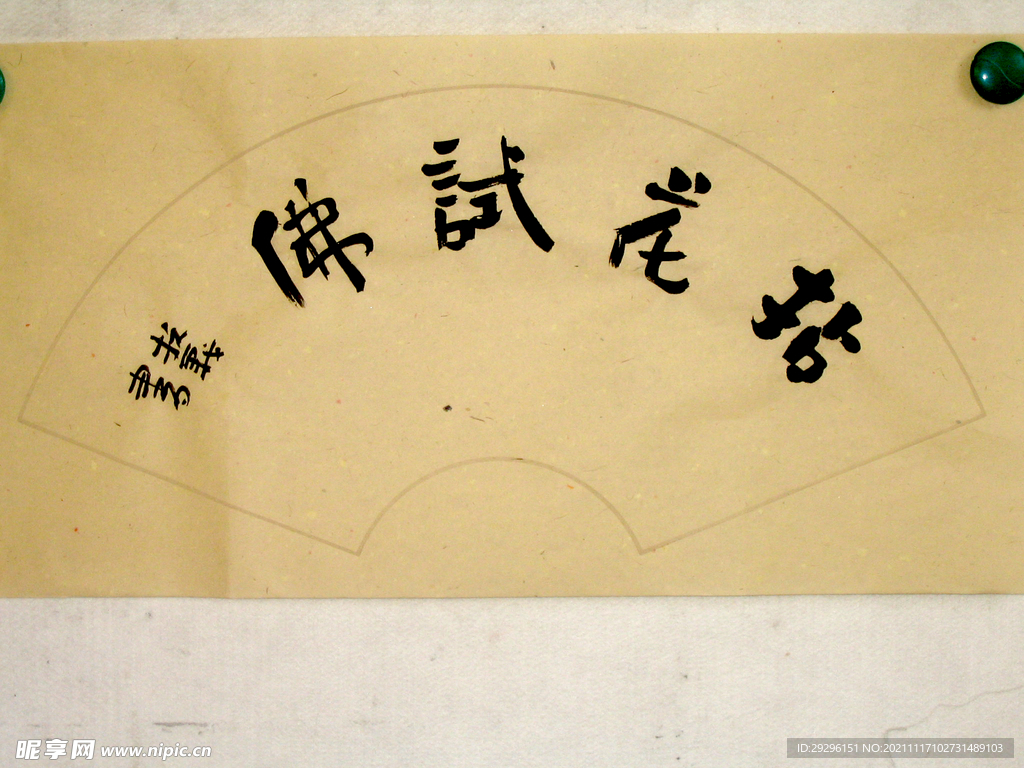 拈花試佛
昵享网 www.nipic.cn
ID:29296151 NO:20211117102731489103